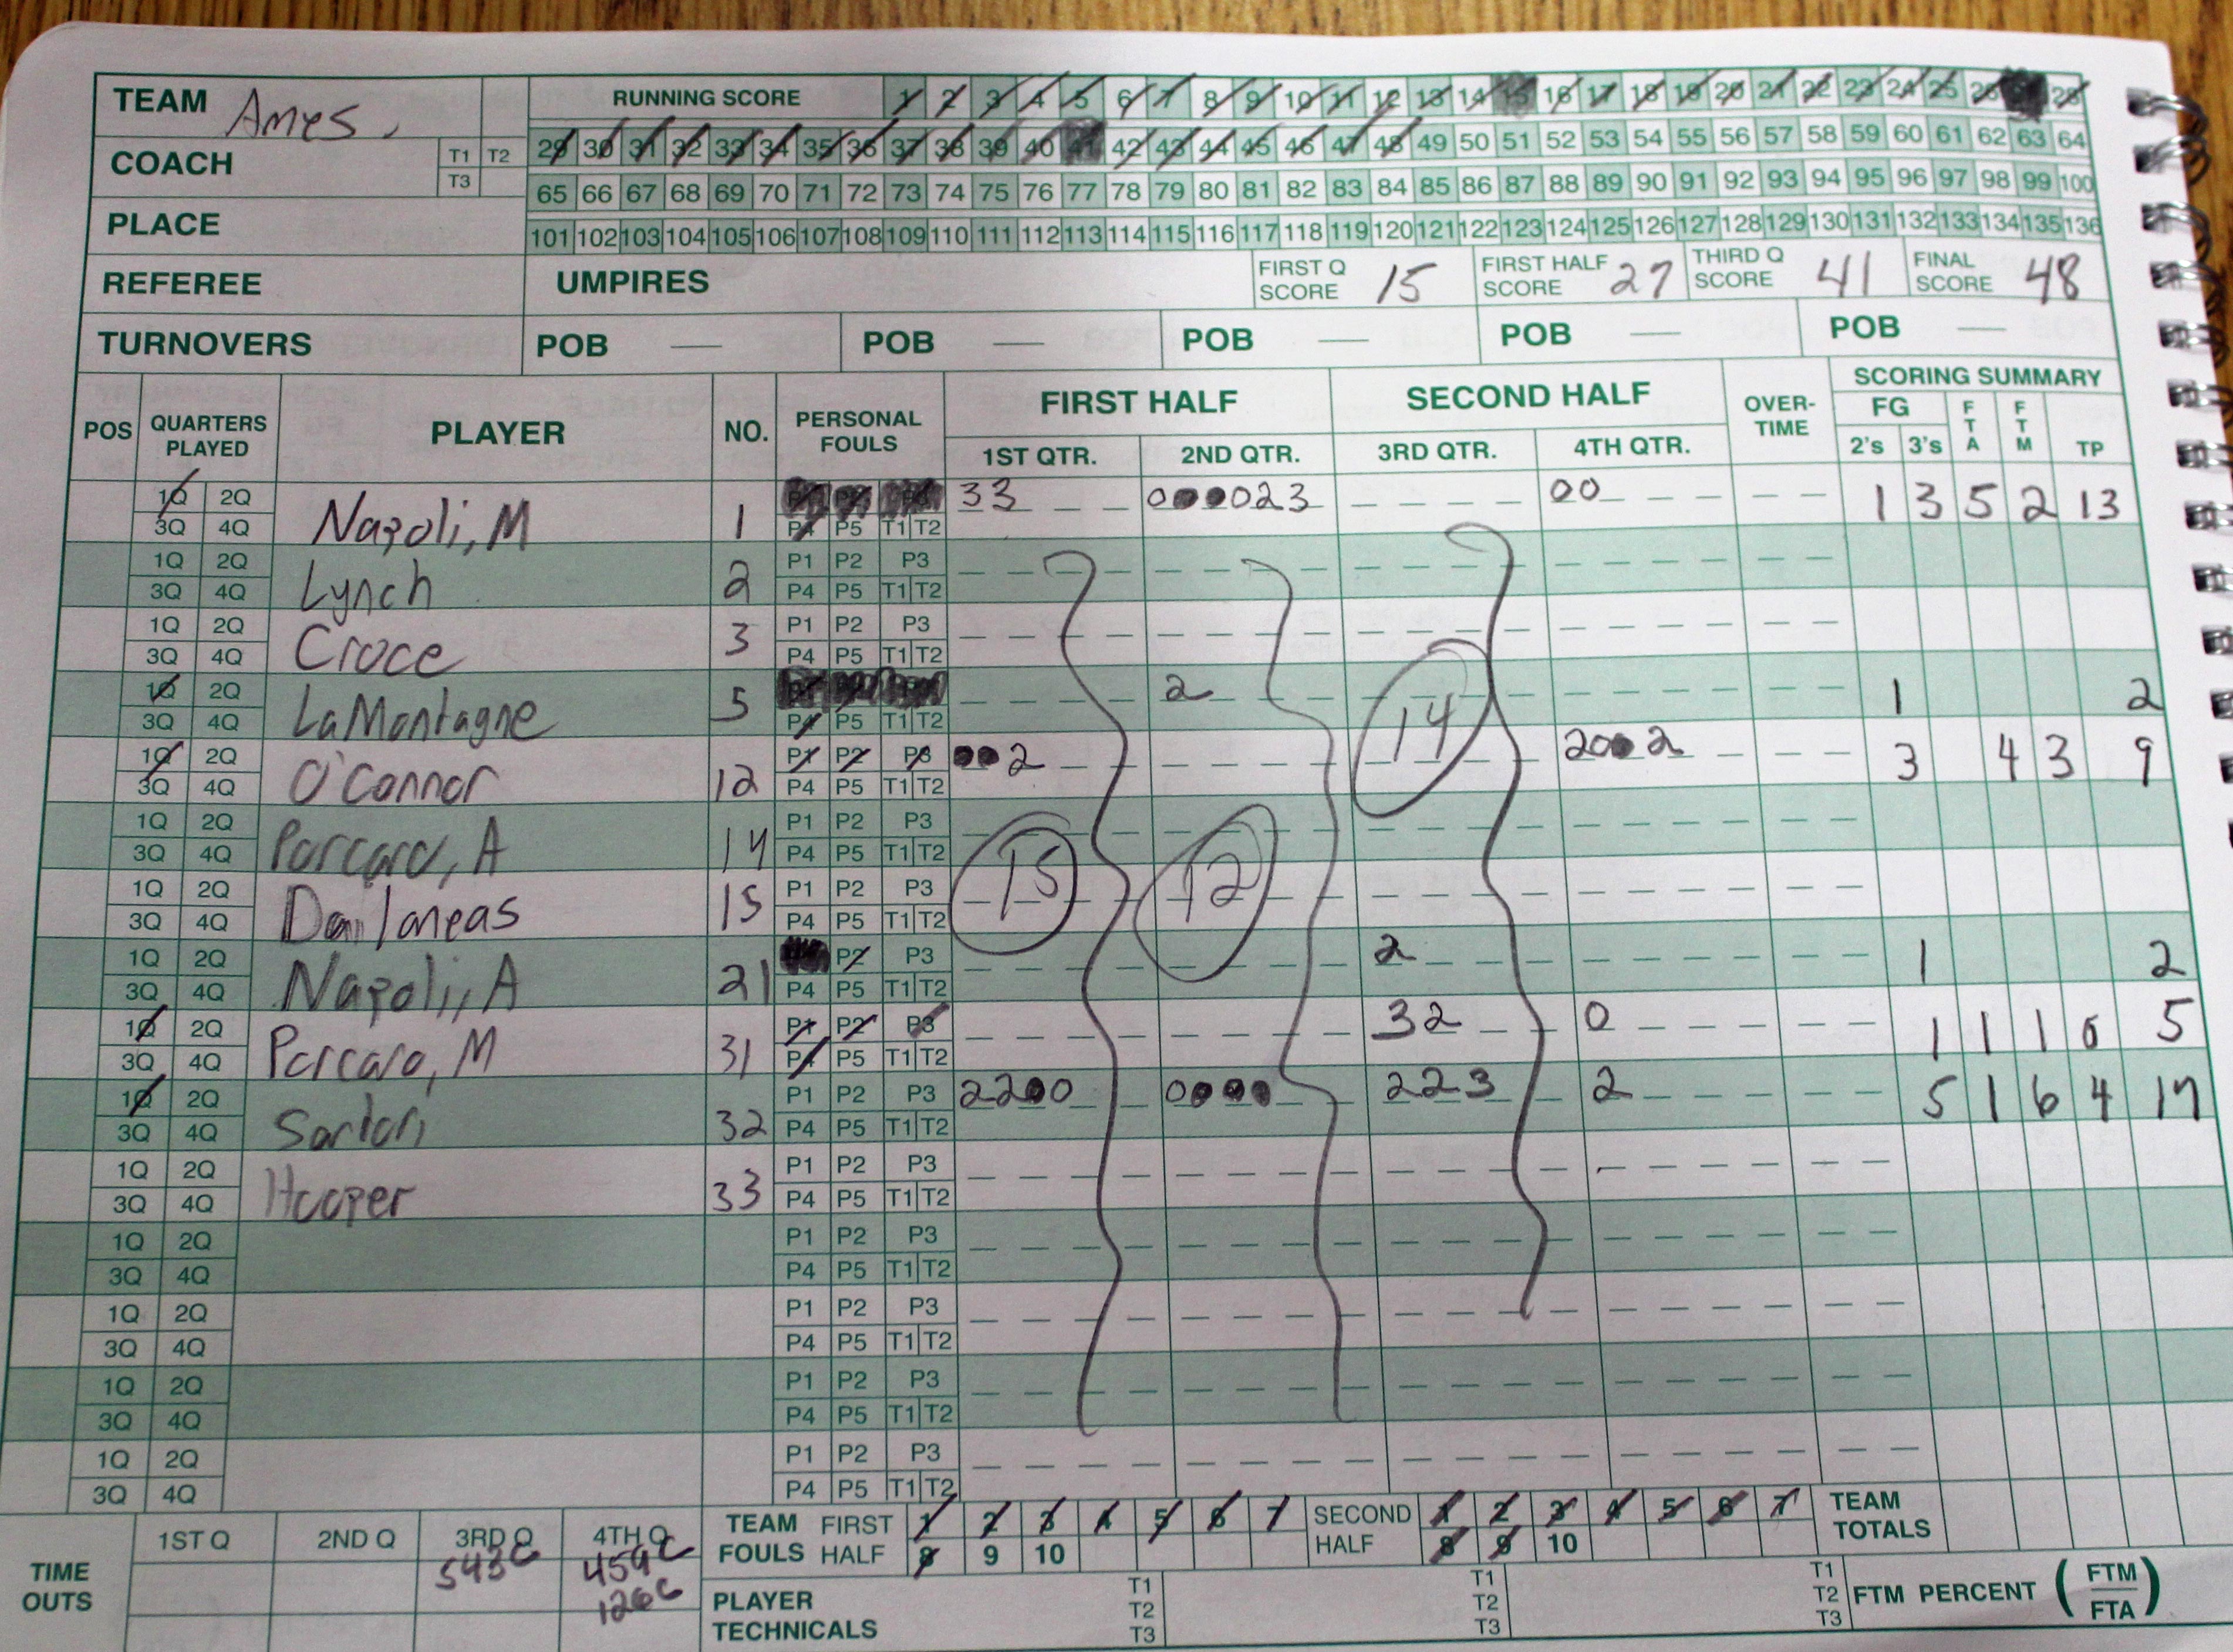 TEAM Ames, RUNNING SCORE 1 2 3 4 5 6 7 8 9 10 11 12 13 14 15 16 17 18 19 20 21 22 23 24 25 26 28
COACH T1 T2 29 30 31 32 33 34 35 36 37 38 39 40 41 42 43 44 45 46 47 48 49 50 51 52 53 54 55 56 57 58 59 60 61 62 63 64
T3
65 66 67 68 69 70 71 72 73 74 75 76 77 78 79 80 81 82 83 84 85 86 87 88 89 90 91 92 93 94 95 96 97 98 99 100
PLACE 101 102 103 104 105 106 107 108 109 110 111 112 113 114 115 116 117 118 119 120 121 122 123 124 125 126 127 128 129 130 131 132 133 134 135 136
REFEREE UMPIRES FIRST Q SCORE 15 FIRST HALF SCORE 27 THIRD Q SCORE 41 FINAL SCORE 48
TURNOVERS POB — POB — POB — POB — POB —
POS QUARTERS PLAYED PLAYER NO. PERSONAL FOULS FIRST HALF SECOND HALF OVER-TIME SCORING SUMMARY
1ST QTR. 2ND QTR. 3RD QTR. 4TH QTR. FG 2's 3's FTA FTM TP
1Q 2Q Napoli, M 1 33 023 00 1 3 5 2 13
3Q 4Q P4 P5 T1 T2
1Q 2Q Lynch 2 P1 P2 P3
3Q 4Q P4 P5 T1 T2
1Q 2Q Croce 3 P1 P2 P3
3Q 4Q P4 P5 T1 T2
1Q 2Q LaMontagne 5 2 1 2
3Q 4Q P4 P5 T1 T2
1Q 2Q O'Connor 12 P1 P2 P3 2 14 20 2 3 4 3 9
3Q 4Q P4 P5 T1 T2
1Q 2Q Porcaro, A 14 P1 P2 P3
3Q 4Q P4 P5 T1 T2
1Q 2Q 15 P1 P2 P3 15 12
3Q 4Q P4 P5 T1 T2
1Q 2Q Napoli, A 21 P2 P3 2 1 2
3Q 4Q P4 P5 T1 T2
1Q 2Q Porcaro, M 31 P1 P2 P3 32 0 1 1 1 0 5
3Q 4Q P4 P5 T1 T2
1Q 2Q Sartori 32 P1 P2 P3 22 0 0 223 2 5 1 6 4 17
3Q 4Q P4 P5 T1 T2
1Q 2Q Hooper 33 P1 P2 P3
3Q 4Q P4 P5 T1 T2
1Q 2Q P1 P2 P3
3Q 4Q P4 P5 T1 T2
1Q 2Q P1 P2 P3
3Q 4Q P4 P5 T1 T2
1Q 2Q P1 P2 P3
3Q 4Q P4 P5 T1 T2
1Q 2Q P1 P2 P3
3Q 4Q P4 P5 T1 T2
TIME OUTS 1ST Q 2ND Q 3RD Q 4TH Q TEAM FOULS FIRST HALF 1 2 3 4 5 6 7 SECOND HALF 1 2 3 4 5 6 7 TEAM TOTALS
543C 459C 8 9 10 8 9 10
126C PLAYER TECHNICALS T1 T2 T3 T1 T2 T3 T1 T2 T3 FTM PERCENT (FTM/FTA)